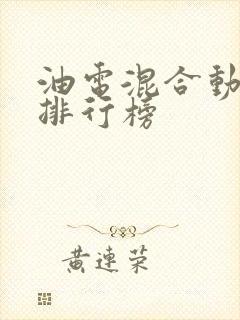 油電混合動
排行榜
黃連荣